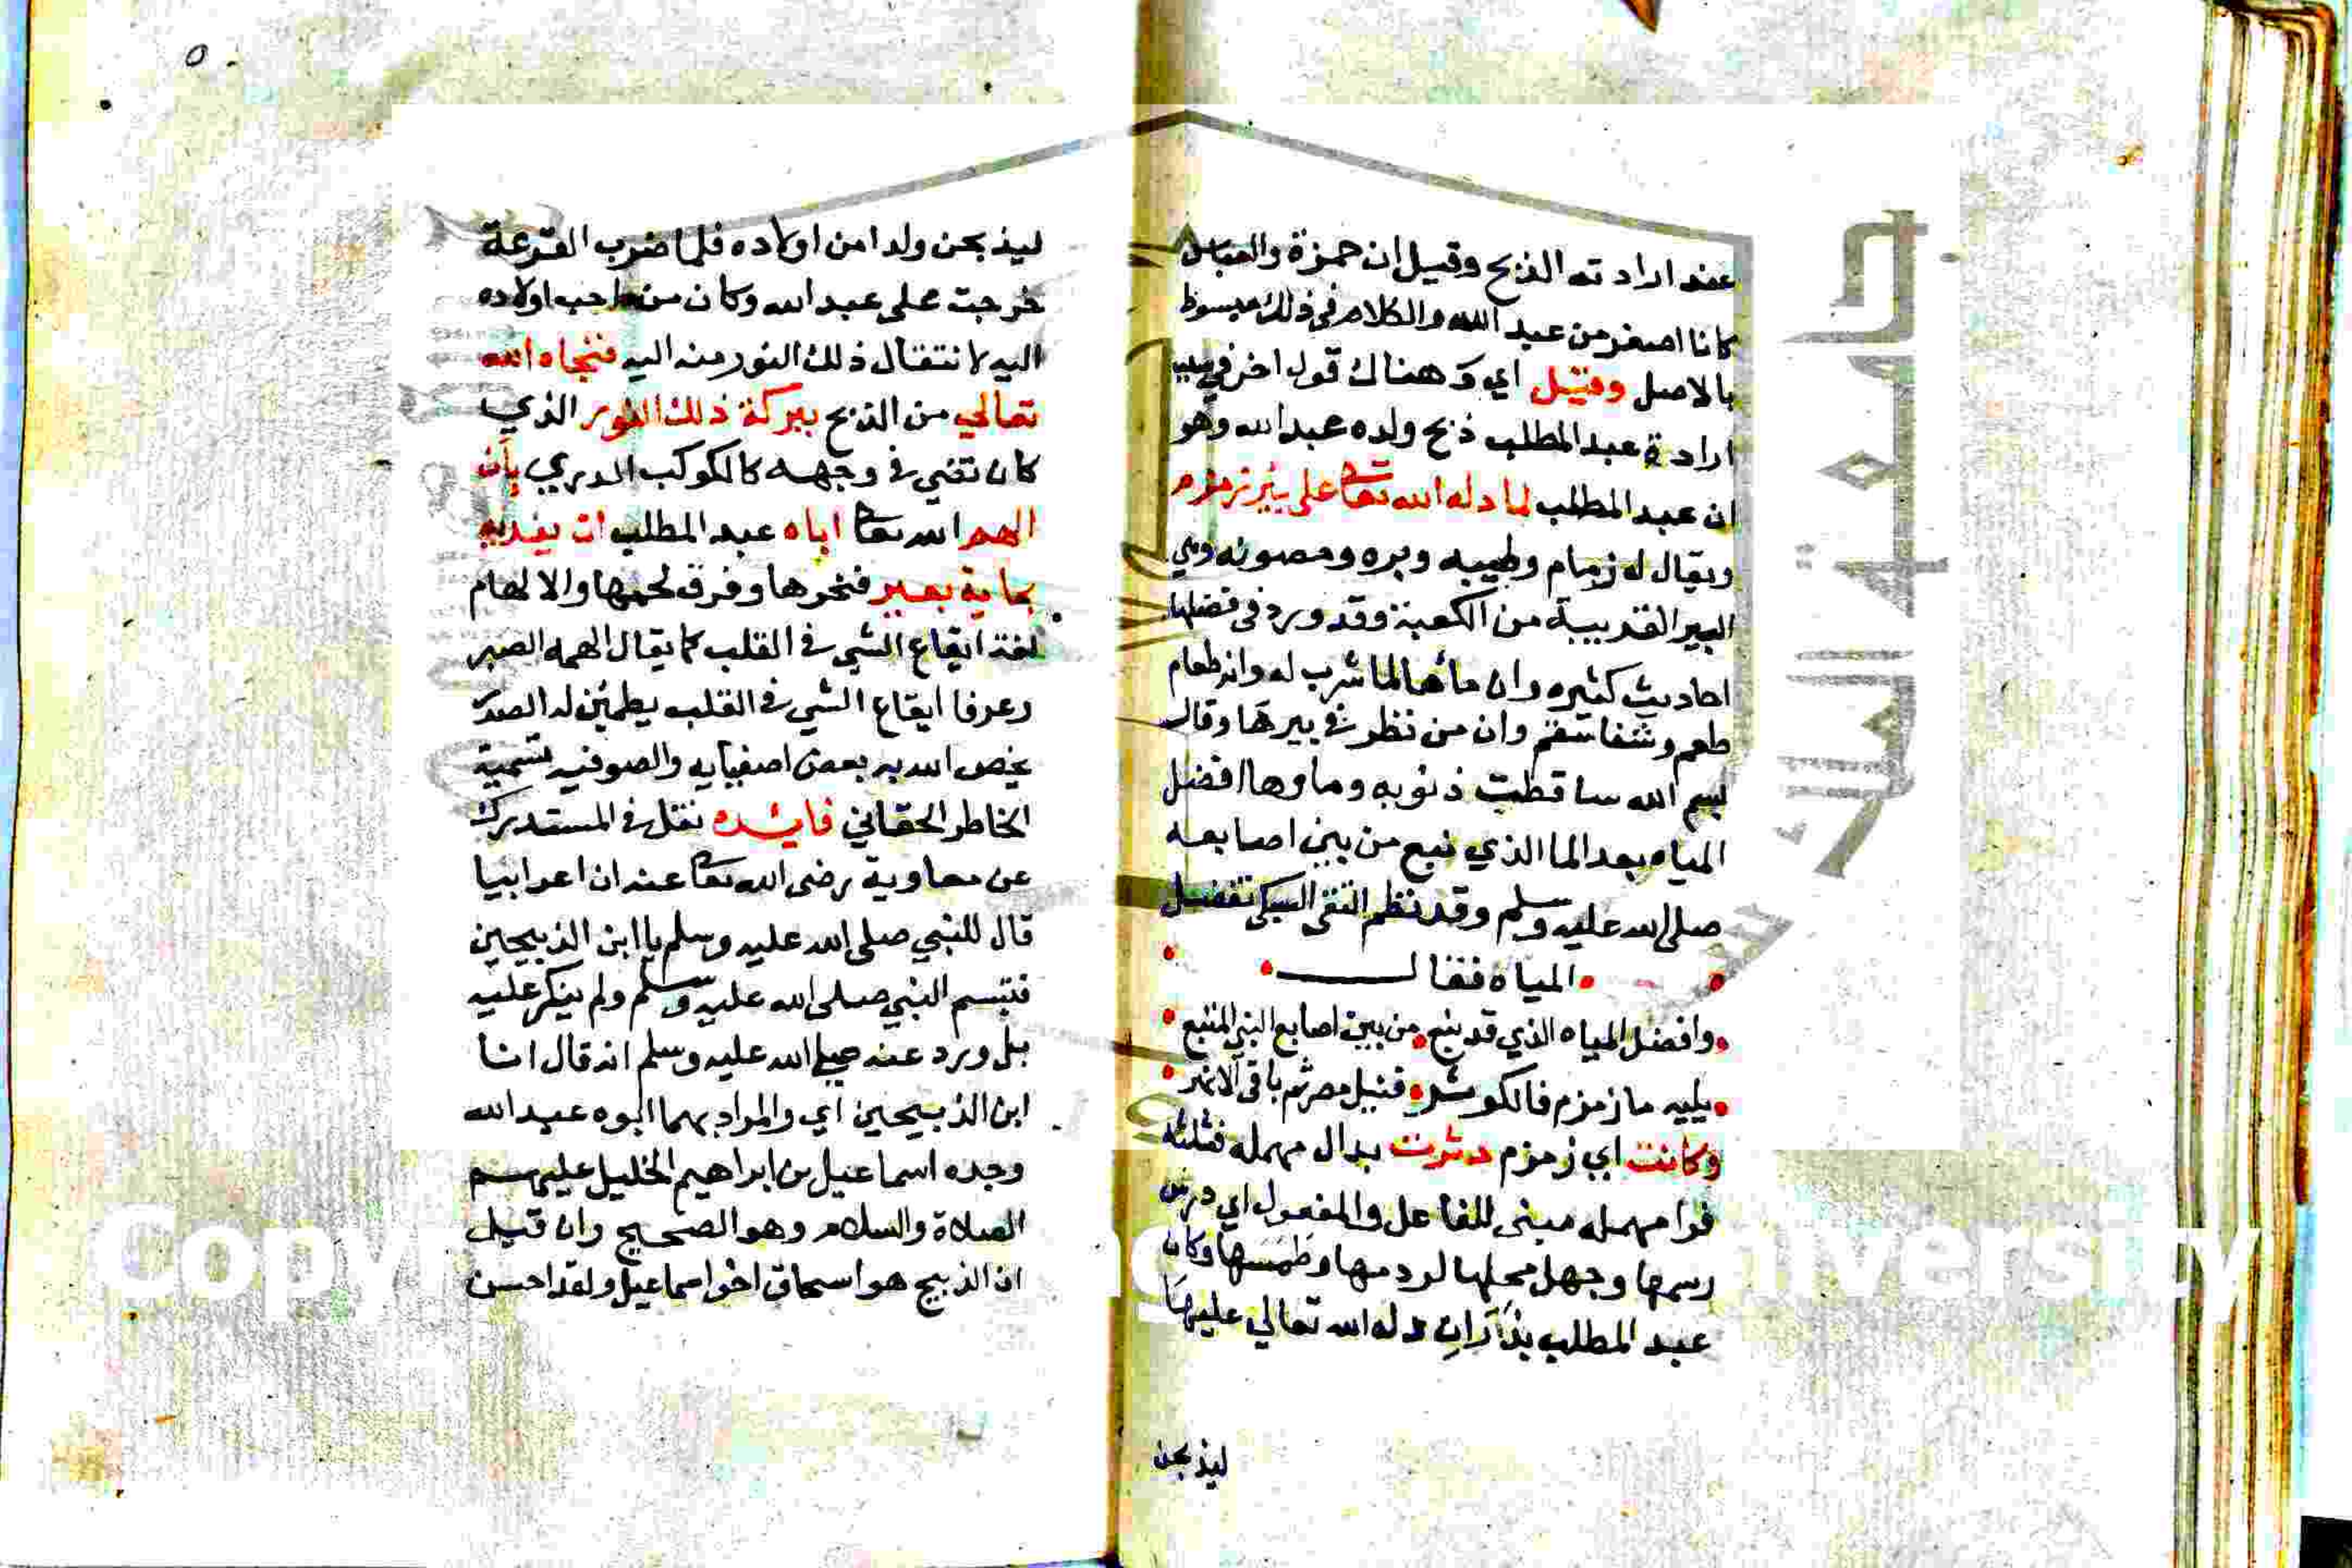 عند ارادته الذبح وقيل ان حمزة والعباس
كانا اصغر من عبد الله والكلام في ذلك مبسوط
بالاصل وقيل اي وهناك قول اخر في سبب
ارادة عبد المطلب ذبح ولده عبد الله وهو
ان عبد المطلب لما دله الله تعا على بير زمزم
ويقال له زمام وطيبه وبره ومصونه وهي
البير القريبة من الكعبة وقد ورد في فضلها
احاديث كثيره وان مأها لما شرب له وانه طعام
طعم وشفا سقم وان من نظر في بيرها وقال
بسم الله ساقطت ذنوبه وماوها افضل
المياه بعد الما الذي نبع من بين اصابعه
صلى الله عليه وسلم وقد نظم التقى السبكى تفضيل
المياه فقال
وافضل المياه الذي قد نبع من بين اصابع النبي المتبع
يليه ما زمزم فالكوثر فنيل مصر ثم باقى الانهر
وكانت اي زمزم دثرت بدال مهمله فثلثه
فرا مهمله مبنى للفاعل والمفعول اي درس
رسمها وجهل محلها لردمها وطمسها وكان
عبد المطلب نذر ان دله الله تعالي عليها
ليذبحن
٥
ليذبحن ولدا من اولاده فلما ضرب القرعة
خرجت على عبد الله وكان من احب اولاده
اليه لانتقال ذلك النور منه اليه فنجاه الله
تعالي من الذبح ببركة ذلك النور الذي
كان تضي في وجهه كالكوكب الدري بأن
الهم الله تعا اباه عبد المطلب ان يفديه
بماية بعير فنحرها وفرق لحمها والالهام
لغة ايقاع الشي في القلب كما يقال الهمه الصبر
وعرفا ايقاع الشي في القلب يطمئن له الصدر
يخص الله به بعض اصفيايه والصوفيه تسمية
الخاطر الحقاني فايده نقل في المستدرك
عن معاوية رضى الله تعا عنه ان اعرابيا
قال للنبي صلى الله عليه وسلم يا ابن الذبيحين
فتبسم النبي صلى الله عليه وسلم ولم ينكر عليه
بل ورد عنه صلى الله عليه وسلم انه قال انا
ابن الذبيحين اي والمراد بهما ابوه عبد الله
وجده اسماعيل بن ابراهيم الخليل عليهم
الصلاة والسلام وهو الصحيح وان قيل
ان الذبيح هو اسحاق اخو اسماعيل ولقد احسن